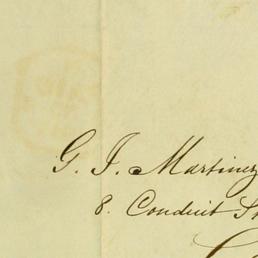 G. J. Martinez
8. Conduit St